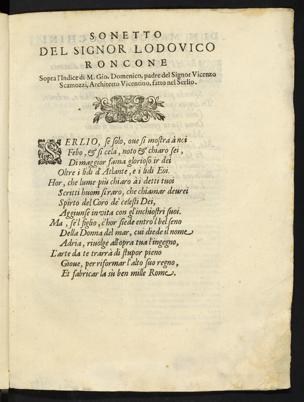 SONETTO
DEL SIGNOR LODOVICO
RONCONE
Sopra l'Indice di M. Gio. Domenico, padre del Signor Vicenzo
Scamozzi, Architetto Vicentino, fatto nel Serlio.
SERLIO, se solo, oue si mostra à noi
Febo, & si cela, noto & chiaro sei,
Di maggor fama glorioso ir dei
Oltre i lidi d'Atlante, e i lidi Eoi.
Hor, che lume più chiaro à i detti tuoi
Scritti huom sì raro, che chiamar deurei
Spirto del Coro de' celesti Dei,
Aggiunse in vita con gl'inchiostri suoi.
Ma, se'l figlio, c'hor siede entro'l bel seno
Della Donna del mar, cui diede il nome
Adria, riuolge all'opra tua l'ingegno,
L'arte da te trarrà di stupor pieno
Gioue, per riformar l'alto suo regno,
Et fabricar la sù ben mille Rome.